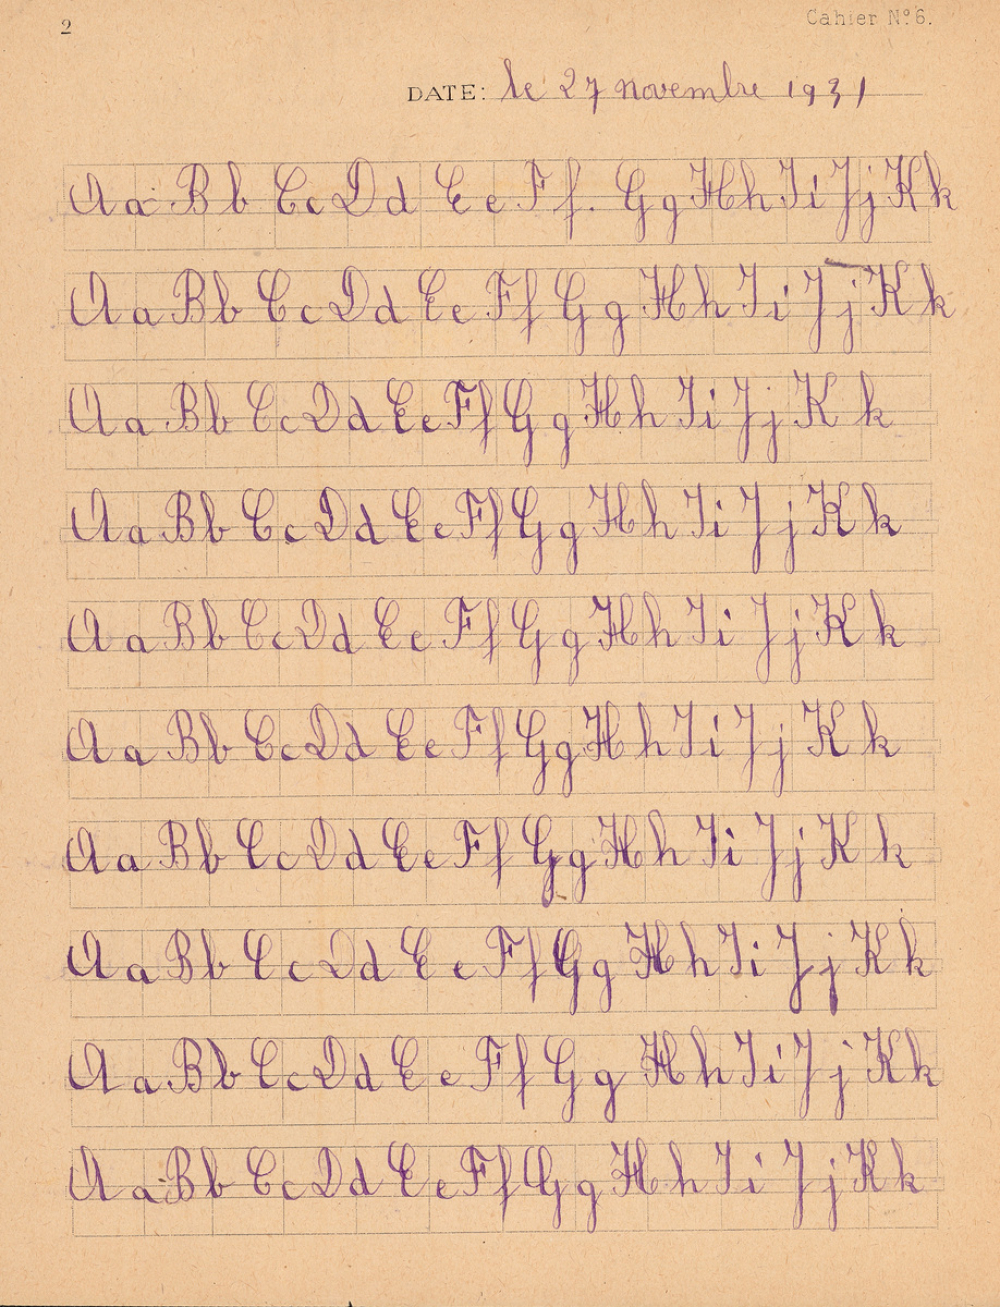 2
Cahier Nº 6.
DATE: le 27 novembre 1931
Aa Bb Cc Dd Ee Ff. Gg Hh Ii Jj Kk
Aa Bb Cc Dd Ee Ff Gg Hh Ii Jj Kk
Aa Bb Cc Dd Ee Ff Gg Hh Ii Jj Kk
Aa Bb Cc Dd Ee Ff Gg Hh Ii Jj Kk
Aa Bb Cc Dd Ee Ff Gg Hh Ii Jj Kk
Aa Bb Cc Dd Ee Ff Gg Hh Ii Jj Kk
Aa Bb Cc Dd Ee Ff Gg Hh Ii Jj Kk
Aa Bb Cc Dd Ee Ff Gg Hh Ii Jj Kk
Aa Bb Cc Dd Ee Ff Gg Hh Ii Jj Kk
Aa Bb Cc Dd Ee Ff Gg Hh Ii Jj Kk